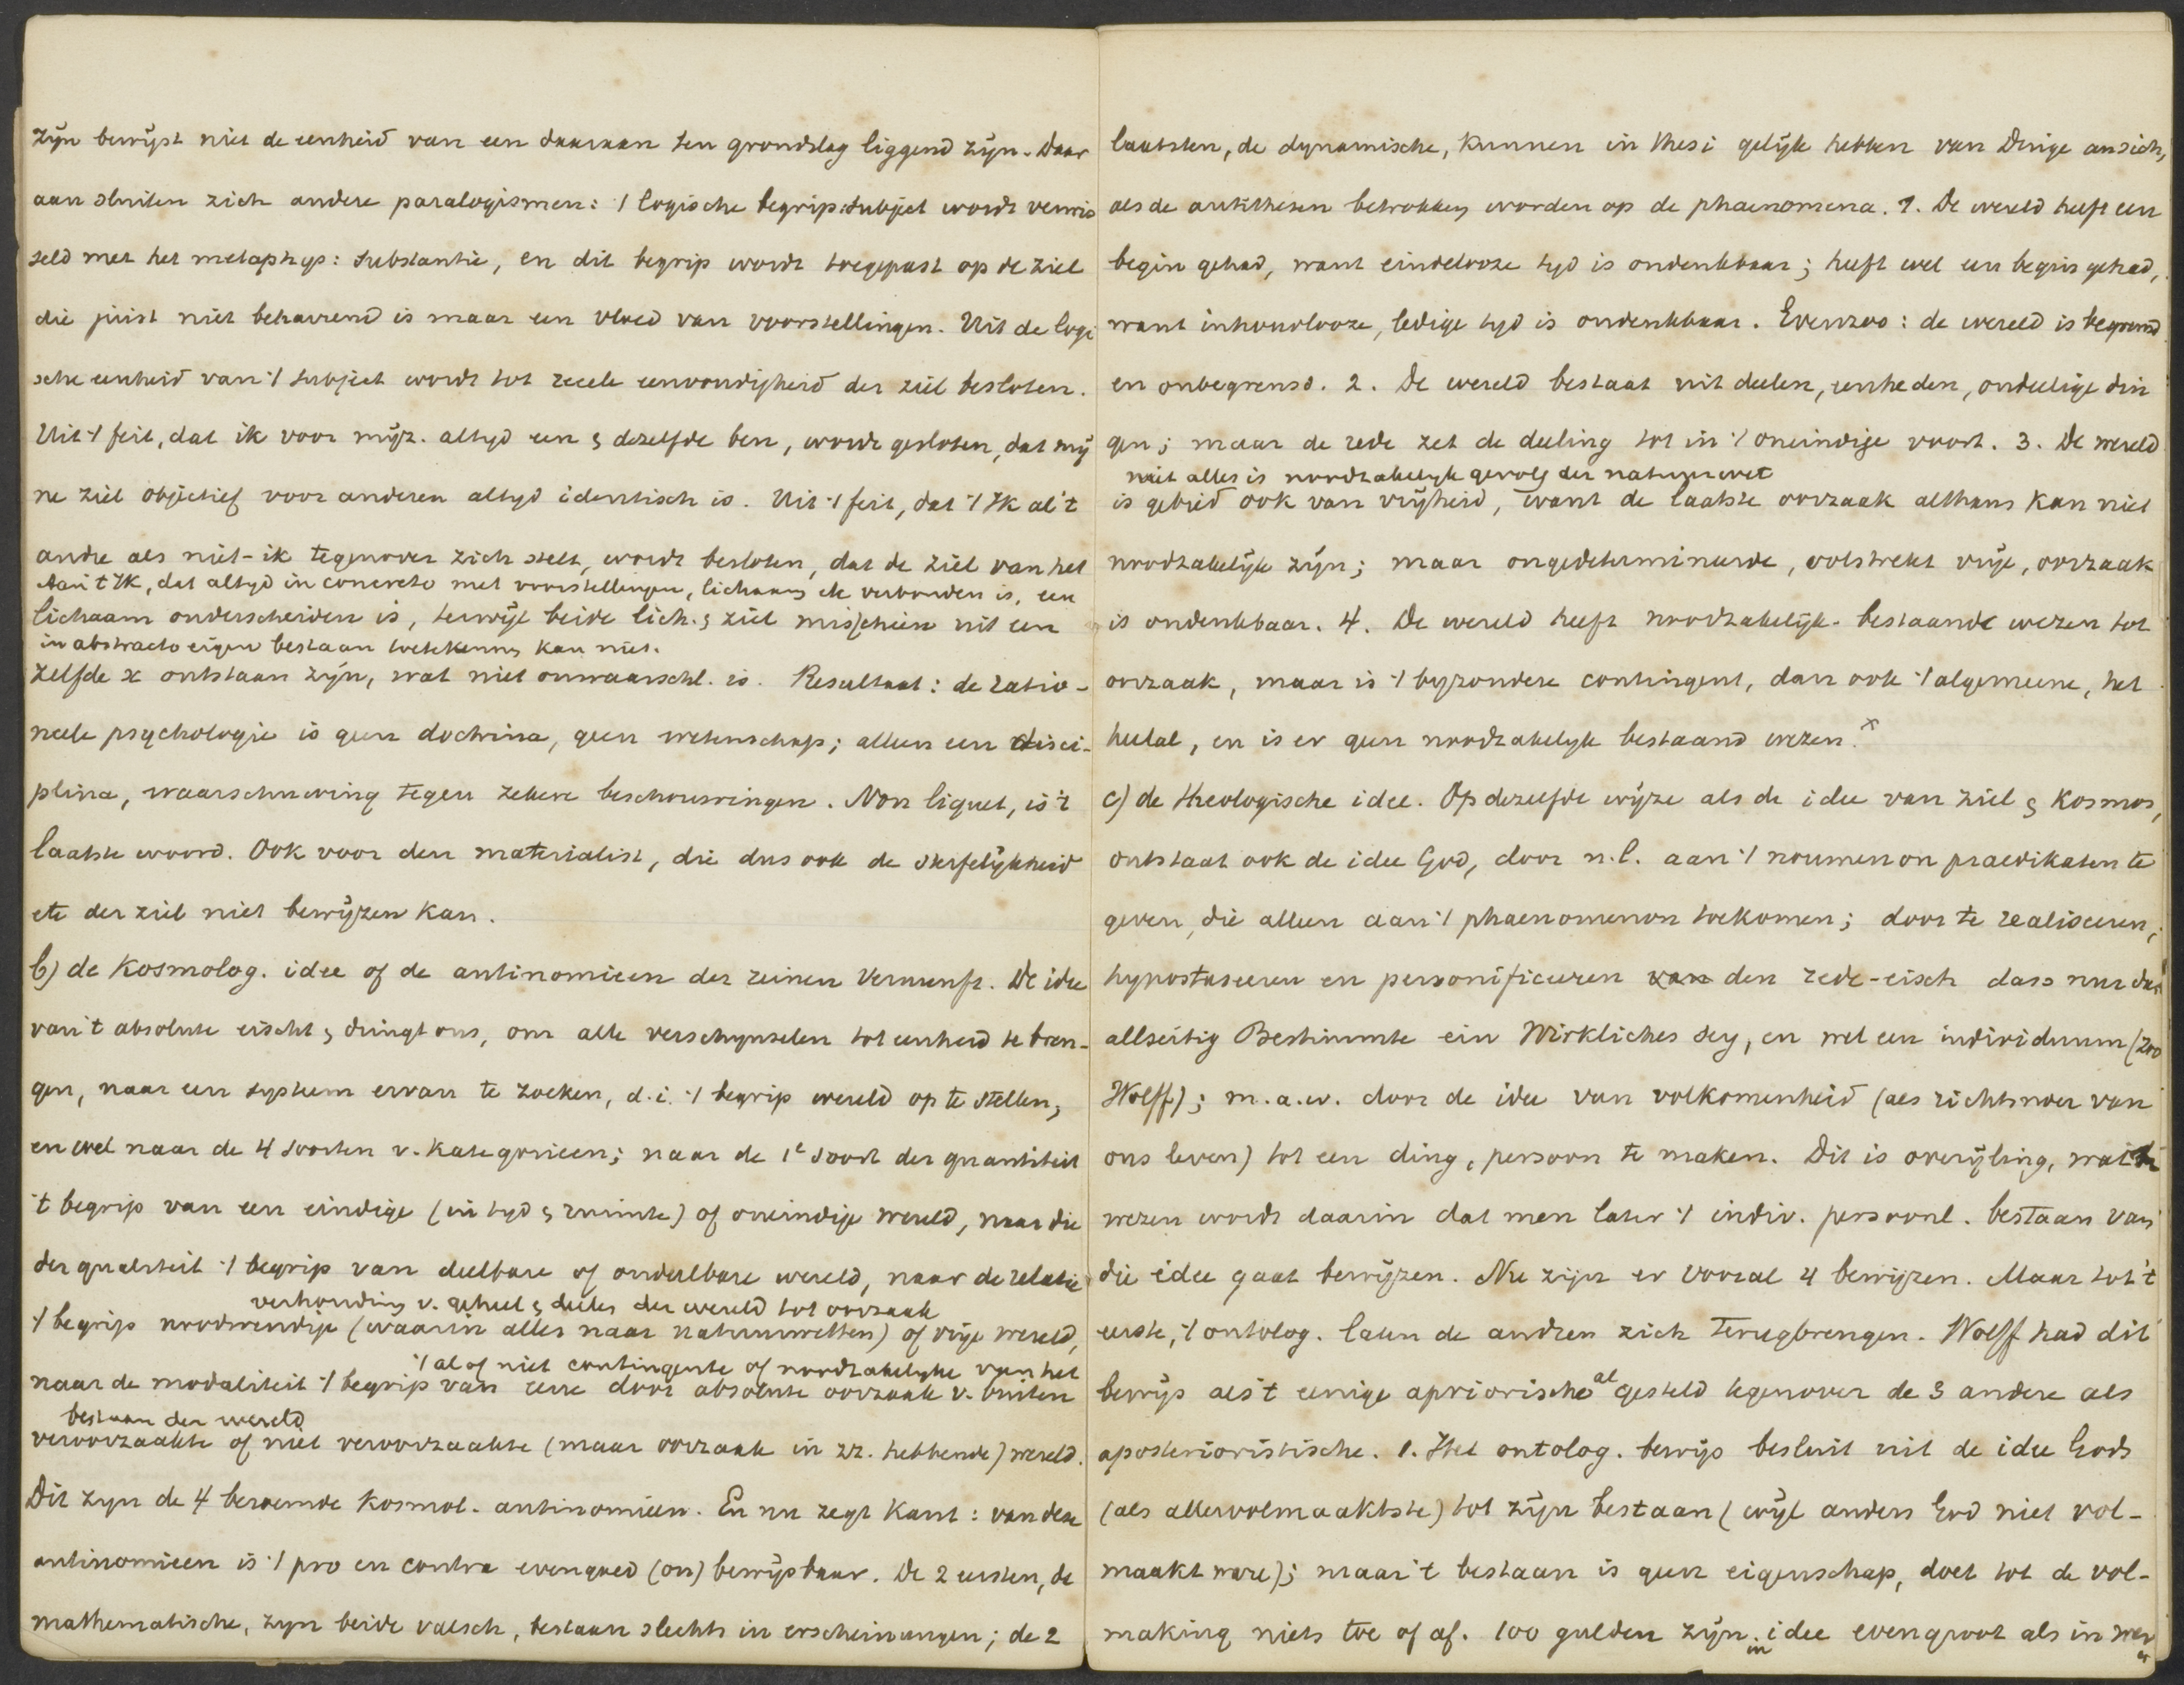 zijn bewijst niet de eenheid van een daaraan ten grondslag liggend zijn. Daar
aan sluiten zich andere paralogismen: 't logische begrip: subject wordt verwis
seld met het metaphys: substantie, en dit begrip wordt toegepast op de ziel
die juist niet beharrend is maar een vloed van voorstellingen. Uit de logi
sche eenheid van 't subject wordt tot reeele eenvoudigheid der ziel besloten.
Uit 't feit, dat ik voor mijz. altyd een & dezelfde ben, wordt gesloten, dat mij
ne ziel objectief voor anderen altyd identisch is. Uit 't feit, dat 't Ik al 't
andre als niet-ik tegenover zich stelt, wordt besloten, dat de ziel van het
Aan 't Ik, dat altyd in concreto met voorstellingen, lichaam etc verbonden is, een
lichaam onderscheiden is, terwijl beide lich. & ziel misschien uit een
in abstracto eigen bestaan toekennen kan niet.
zelfde x ontstaan zijn, wat niet onwaarschl. is. Resultaat: de ratio-
neele psychologie is geen doctrina, geen wetenschap; alleen een disci-
plina, waarschuwing tegen zekere beschouwingen. Non liquet, is 't
laatste woord. Ook voor den materialist, die dus ook de sterfelijkheid
etc der ziel niet bewijzen kan.
b) de Kosmolog. idee of de antinomieen der reinen Vernunft. De idee
van 't absolute eischt & dringt ons, om alle verschynselen tot eenheid te bren-
gen, naar een systeem ervan te zoeken, d.i. 't begrip wereld op te stellen;
en wel naar de 4 soorten v. kategorieen; naar de 1e soort der quantiteit
't begrip van een eindige (in tyd & ruimte) of oneindige wereld, naar die
der qualiteit 't begrip van deelbare of ondeelbare wereld, naar de relatie
verhouding v. geheel & deelen der wereld tot oorzaak
't begrip noodwendige (waarin alles naar natuurwetten) of vrije wereld,
't al of niet contingente of noodzakelyke van het
naar de modaliteit 't begrip van eene door absolute oorzaak v. buiten
bestaan der wereld
veroorzaakte of niet veroorzaakte (maar oorzaak in zz. hebbende) wereld.
Dit zyn de 4 beroemde Kosmol. antinomieen. En nu zegt Kant: van deze
antinomieen is 't pro en contra evengoed (on) bewijsbaar. De 2 eersten, de
mathematische, zyn beide valsch, bestaan slechts in erscheinungen; de 2
laatsten, de dynamische, kunnen in thesi gelijk hebben van Dinge ansich,
als de antithesen betrokken worden op de phaenomena. 1. De wereld heeft een
begin gehad, want eindelooze tyd is ondenkbaar; heeft wel een begin gehad,
want inhoudlooze, ledige tyd is ondenkbaar. Evenzoo: de wereld is begrensd
en onbegrensd. 2. De wereld bestaat uit deelen, eenheden, ondeelige din
gen; maar de rede zet de deeling tot in 't oneindige voort. 3. De wereld
niet alles is noodzakelyk gevolg der natuurwet
is gebied ook van vrijheid, want de laatste oorzaak althans kan niet
noodzakelijk zijn; maar ongedetermineerde, volstrekt vrije, oorzaak
is ondenkbaar. 4. De wereld heeft noodzakelijk-bestaande wezen tot
oorzaak, maar is 't byzondere contingent, dan ook 't algemeene, het
heelal, en is er geen noodzakelyk bestaand wezen. x
c) de theologische idee. Op dezelfde wijze als de idee van ziel & kosmos,
ontstaat ook de idee God, door n.l. aan 't noumenon praedikaten te
geven, die alleen aan 't phaenomenon toekomen; door te realiseeren,
hypostaseeren en personificeeren van den rede-eisch dass nur das
allseitig Bestimmte ein Wirkliches sey, en wel een individuum (zoo
Wolff); m.a.w. door de idee van volkomenheid (als richtsnoer van
ons leven) tot een ding, persoon te maken. Dit is overijling,
wezen wordt daarin dat men later 't indiv. persoonl. bestaan van
die idee gaat bewijzen. Nu zijn er vooral 4 bewijzen. Maar tot 't
eerste, 't ontolog. laten de andren zich terugbrengen. Wolff had dit
bewijs als 't eenige apriorische al gesteld tegenover de 3 andere als
aposterioristische. 1. Het ontolog. bewijs besluit uit de idee Gods
(als allervolmaaktste) tot zijn bestaan (wijl anders God niet vol-
maakt ware); maar 't bestaan is geen eigenschap, doet tot de vol-
making niets toe of af. 100 gulden zijn in idee evengroot als in wer